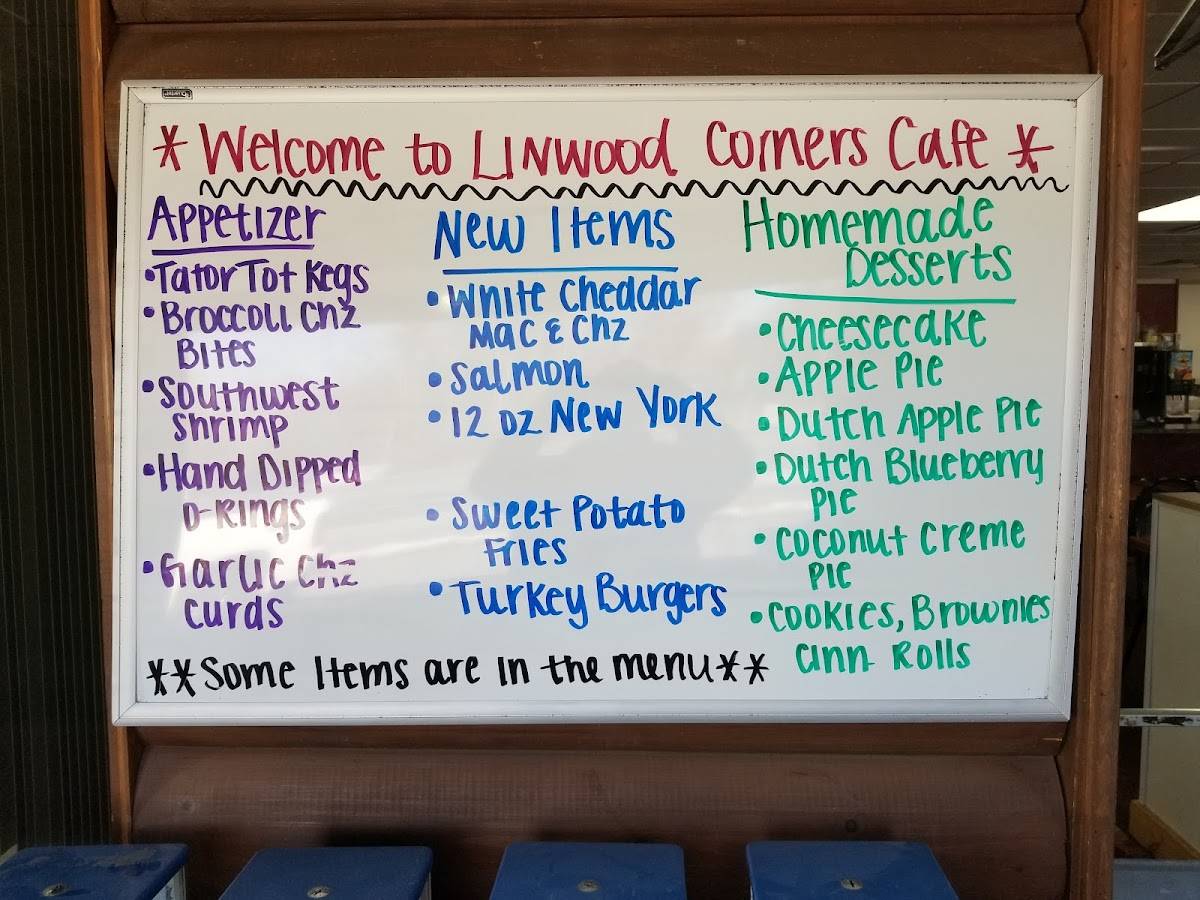 * Welcome to Linwood Corners Cafe *
Appetizer
• Tator Tot Kegs
• Broccoli Chz
Bites
• Southwest
Shrimp
• Hand Dipped
O-Rings
• Garlic Chz
Curds
New Items
• White Cheddar
Mac & Chz
• Salmon
• 12 oz New York
• Sweet Potato
Fries
• Turkey Burgers
Homemade
Desserts
• Cheesecake
• Apple Pie
• Dutch Apple Pie
• Dutch Blueberry
Pie
• Coconut Creme
Pie
• Cookies, Brownies
Cinn Rolls
**Some Items are in the menu**